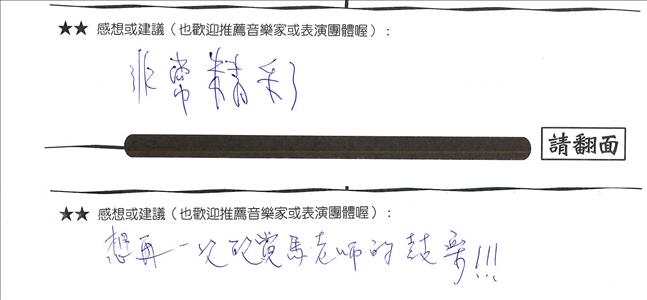 ★★ 感想或建議（也歡迎推薦音樂家或表演團體喔）：
非常精彩
請翻面
★★ 感想或建議（也歡迎推薦音樂家或表演團體喔）：
想再一次欣賞馬老師的鼓樂!!!